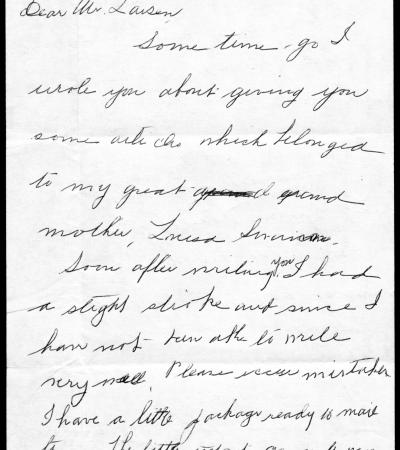 Dear Mr. Larsen
Some time - go I
wrote you about giving you
some articles which belonged
to my great grand
mother, Louisa
Soon after writing you I had
a slight stroke and since I
have not been able to write
very well. Please excuse mistakes
I have a little package ready to mail
to The little